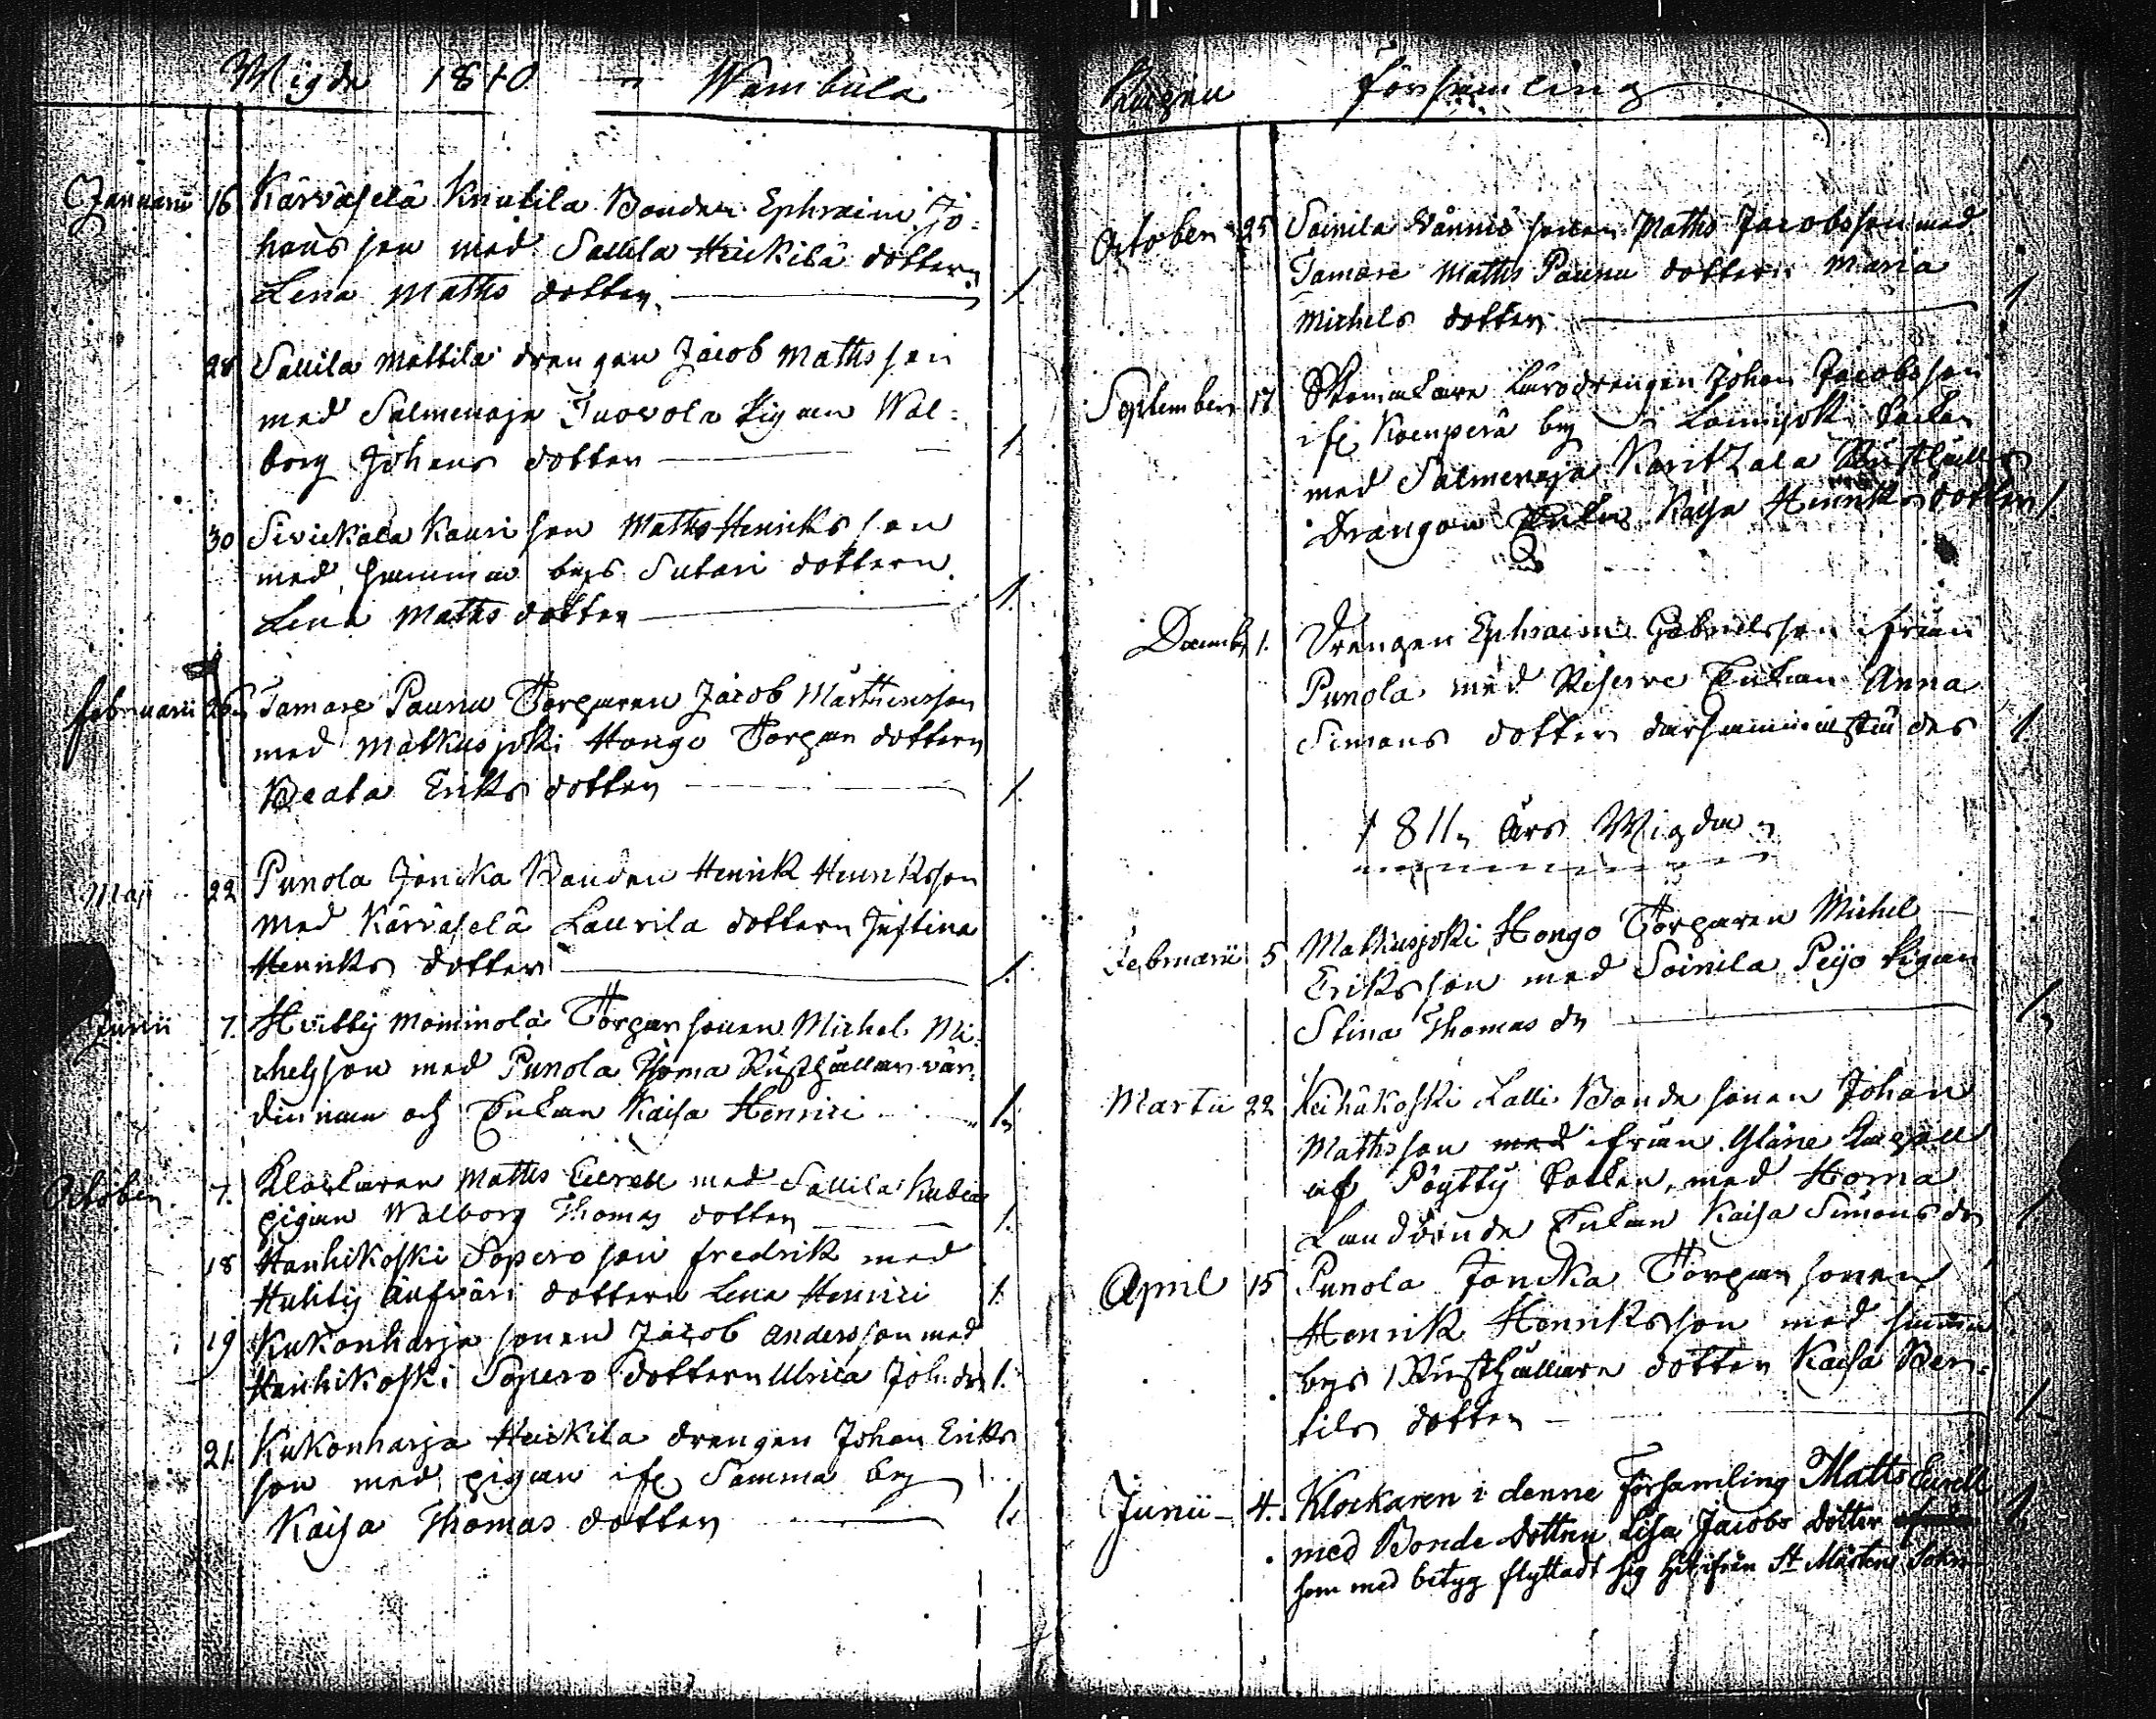 Wigde 1810 i Wambula
Januarii 16 Kärväselä Knutila Bonden Ephraim Jo-
hansson med Sallila Heickilä dottern
Lena Matts dotter 1.
28 Sallila Mattila drengen Jacob Mathsson
med Salmenoja Juovola Pigan Wal-
borg Johans dotter 1.
30 Sivickala Kauri son Maths Henriksson
med samma bys Sutari dottern
Lena Maths dotter 1.
Februarii 26 Tamare Paunu Torparen Jacob Mårthensson
med Matkusjoki Hongo Torpar dottern
Beata Eriks dotter 1.
Maji 22 Punola Joncka Bonden Henrik Henriksson
med Kärväselä Laurila dottern Justina
Henriks dotter 1.
Junii 7. Hvittis Mommola Torpar sonen Michel Mi-
chelsson med Punola Thoma Rusthållar vär-
dinnan och Enkan Kaisa Henrici 1.
October 7. Klockaren Matts Eurell med Sallila
pigan Walborg Thomas dotter 1.
18 Hanhikoski Sopero son Fredrik med
dottern Lena Henrici 1.
19 Kukonharja sonen Jacob Andersson med
Hanhikoski Sopero dottern Ulrica Joh: dr 1.
21. Kukonharja Heickila drengen Johan Eriks
son med pigan ifr Samma by
Kaisa Thomas dotter 1.
Capell Församling
October 25 Soinila Vännio sonen Maths Jacobsson med
Tamare Matts Paunu dottern Maria
Michels dotter 1
September 17 Skomakare Läro drengen Johan Jacobsson
ifr Koenperä by i Loimjoki Socken
med Salmenoja Karitzala Rusthålls
Drängens Enka Kaisa Henriks dotter 1.
Decemb 1. Drengen Ephraim Gabrielsson ifrån
Punola med Reserve Enkan Anna
Simons dotter dersammastädes 1.
1811 års Wigde
Februarii 5 Matkusjoki Hongo Torparen Michel
Eriksson med Soinila Peijo Pigan
Stina Thomas dr 1
Martii 22 Keihäkoski Lalli Bonde sonen Johan
Mathsson med ifrån Yläne Capell
af Pöytty Socken, med Horna
Landbonde Enkan Kaisa Simons dr 1
April 15 Punola Joncka Torpar sonen
Henrik Henriksson med samma
bys Rusthållare dotter Kaisa Ber-
tils dotter 1.
Junii 4. Klockaren i denne Församling Matts Eurell
med Bonde dottren Lisa Jacobs dotter 1.
som med betyg flyttadt sig hit ifrån St Mårtens Sokn